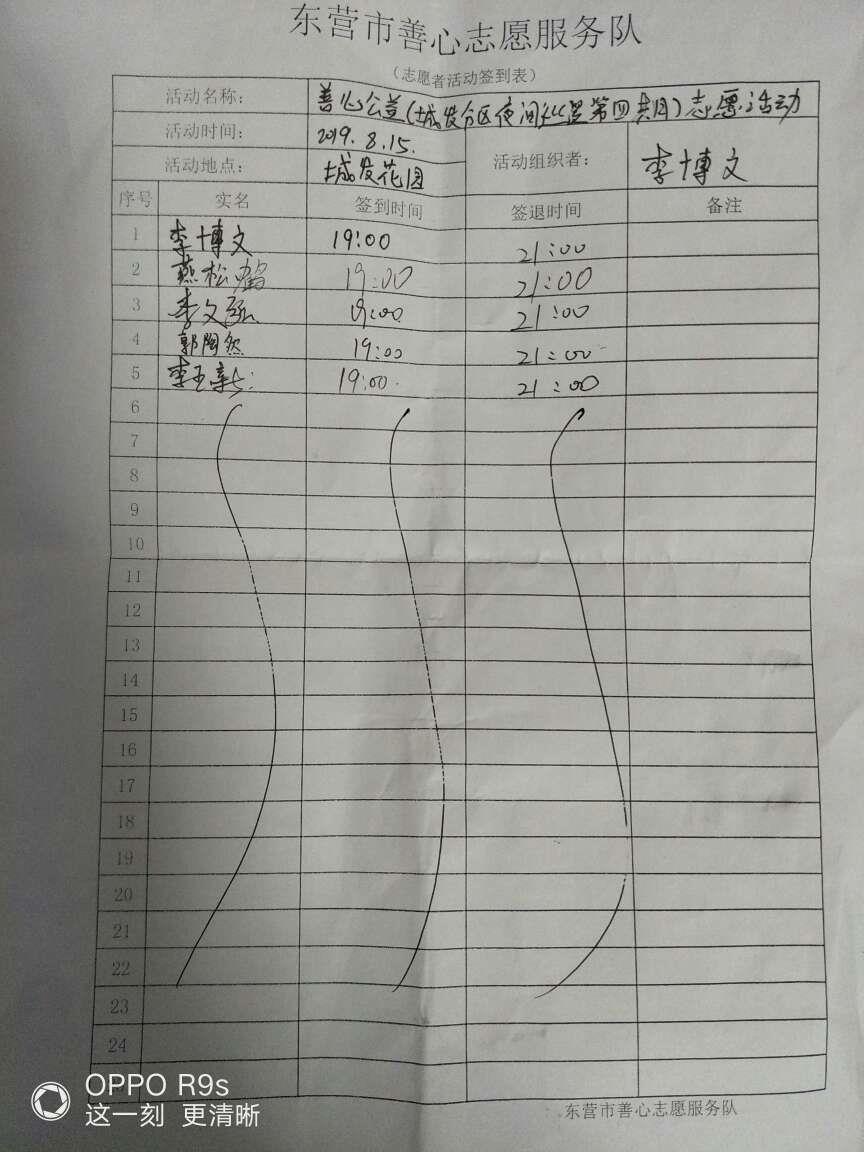 东营市善心志愿服务队
（志愿者活动签到表）
活动名称： 善心公益（城发分区夜间巡逻第四期）志愿活动
活动时间： 2019.8.15.
活动地点： 城发花园 活动组织者： 李博文
序号 实名 签到时间 签退时间 备注
1 李博文 19:00 21:00
2 燕松 19:00 21:00
3 李文 19:00 21:00
4 郭陶然 19:00 21:00
5 李玉 19:00. 21:00
6
7
8
9
10
11
12
13
14
15
16
17
18
19
20
21
22
23
24
东营市善心志愿服务队
OPPO R9s
这一刻 更清晰